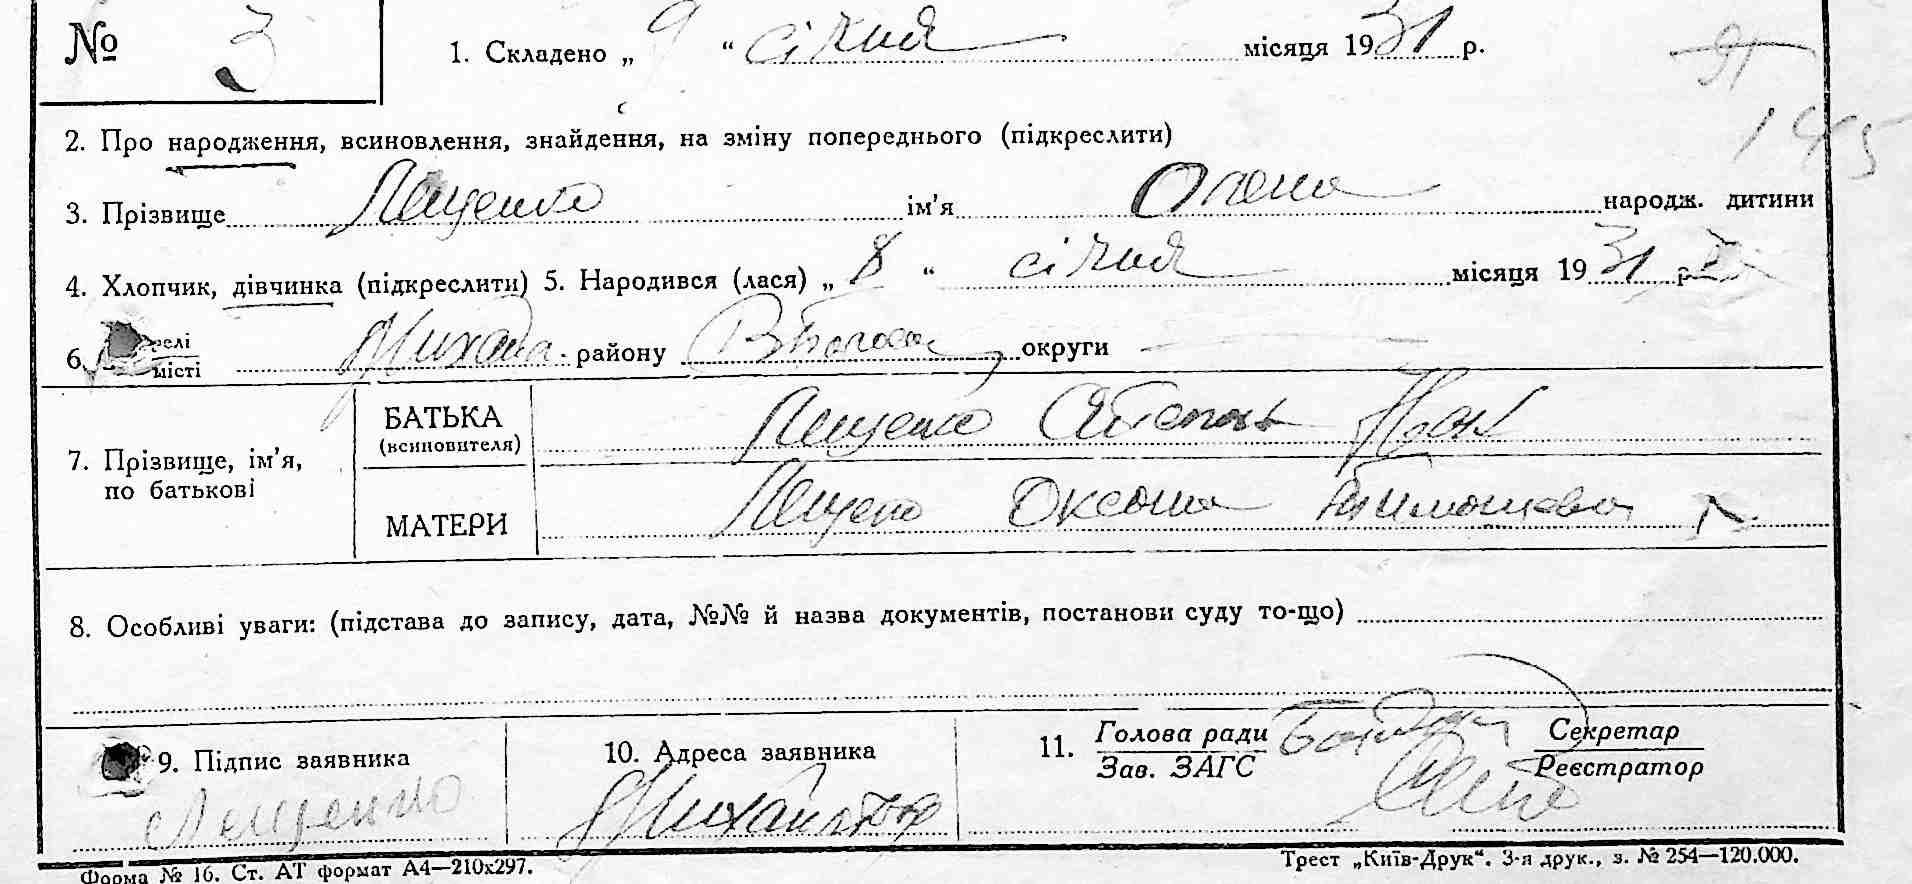 № 3
1. Складено „ 9 “ січня місяця 1931 р.
2. Про народження, всиновлення, знайдення, на зміну попереднього (підкреслити)
145
3. Прізвище Лещенко ім'я Олена народж. дитини
4. Хлопчик, дівчинка (підкреслити) 5. Народився (лася) „ 8 “ січня місяця 1931 р.
6. селі
місті району округи
7. Прізвище, ім'я, по батькові
БАТЬКА (всиновителя) Лещенко Степан
МАТЕРИ Лещенко Оксана Тимошева
8. Особливі уваги: (підстава до запису, дата, №№ й назва документів, постанови суду то-що)
9. Підпис заявника
Лещенко
10. Адреса заявника
11. Голова ради
Зав. ЗАГС
Секретар
Реєстратор
Форма № 16. Ст. АТ формат А4—210х297.
Трест „Київ-Друк“. 3-я друк., з. № 254—120.000.